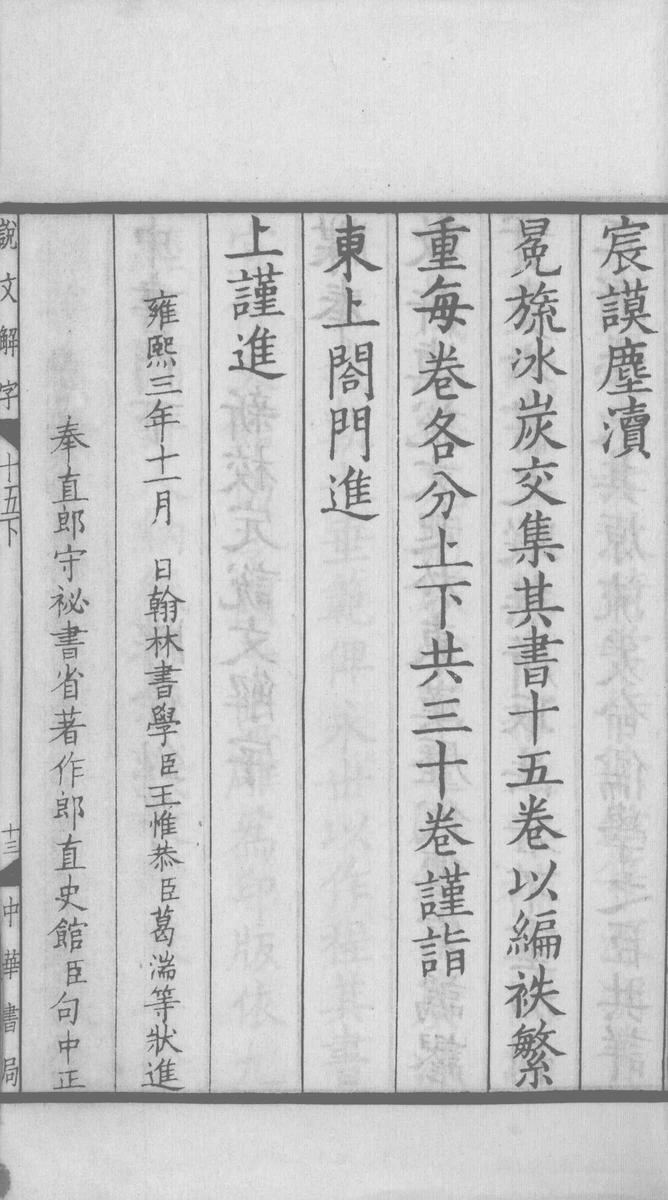 宸謨塵瀆
冕旒冰炭交集其書十五卷以編袟繁
重每卷各分上下共三十卷謹詣
東上閤門進
上謹進
雍熙三年十一月　日翰林書學臣王惟恭臣葛湍等狀進
奉直郎守祕書省著作郎直史館臣句中正
說文解字　十五下　十三　中華書局